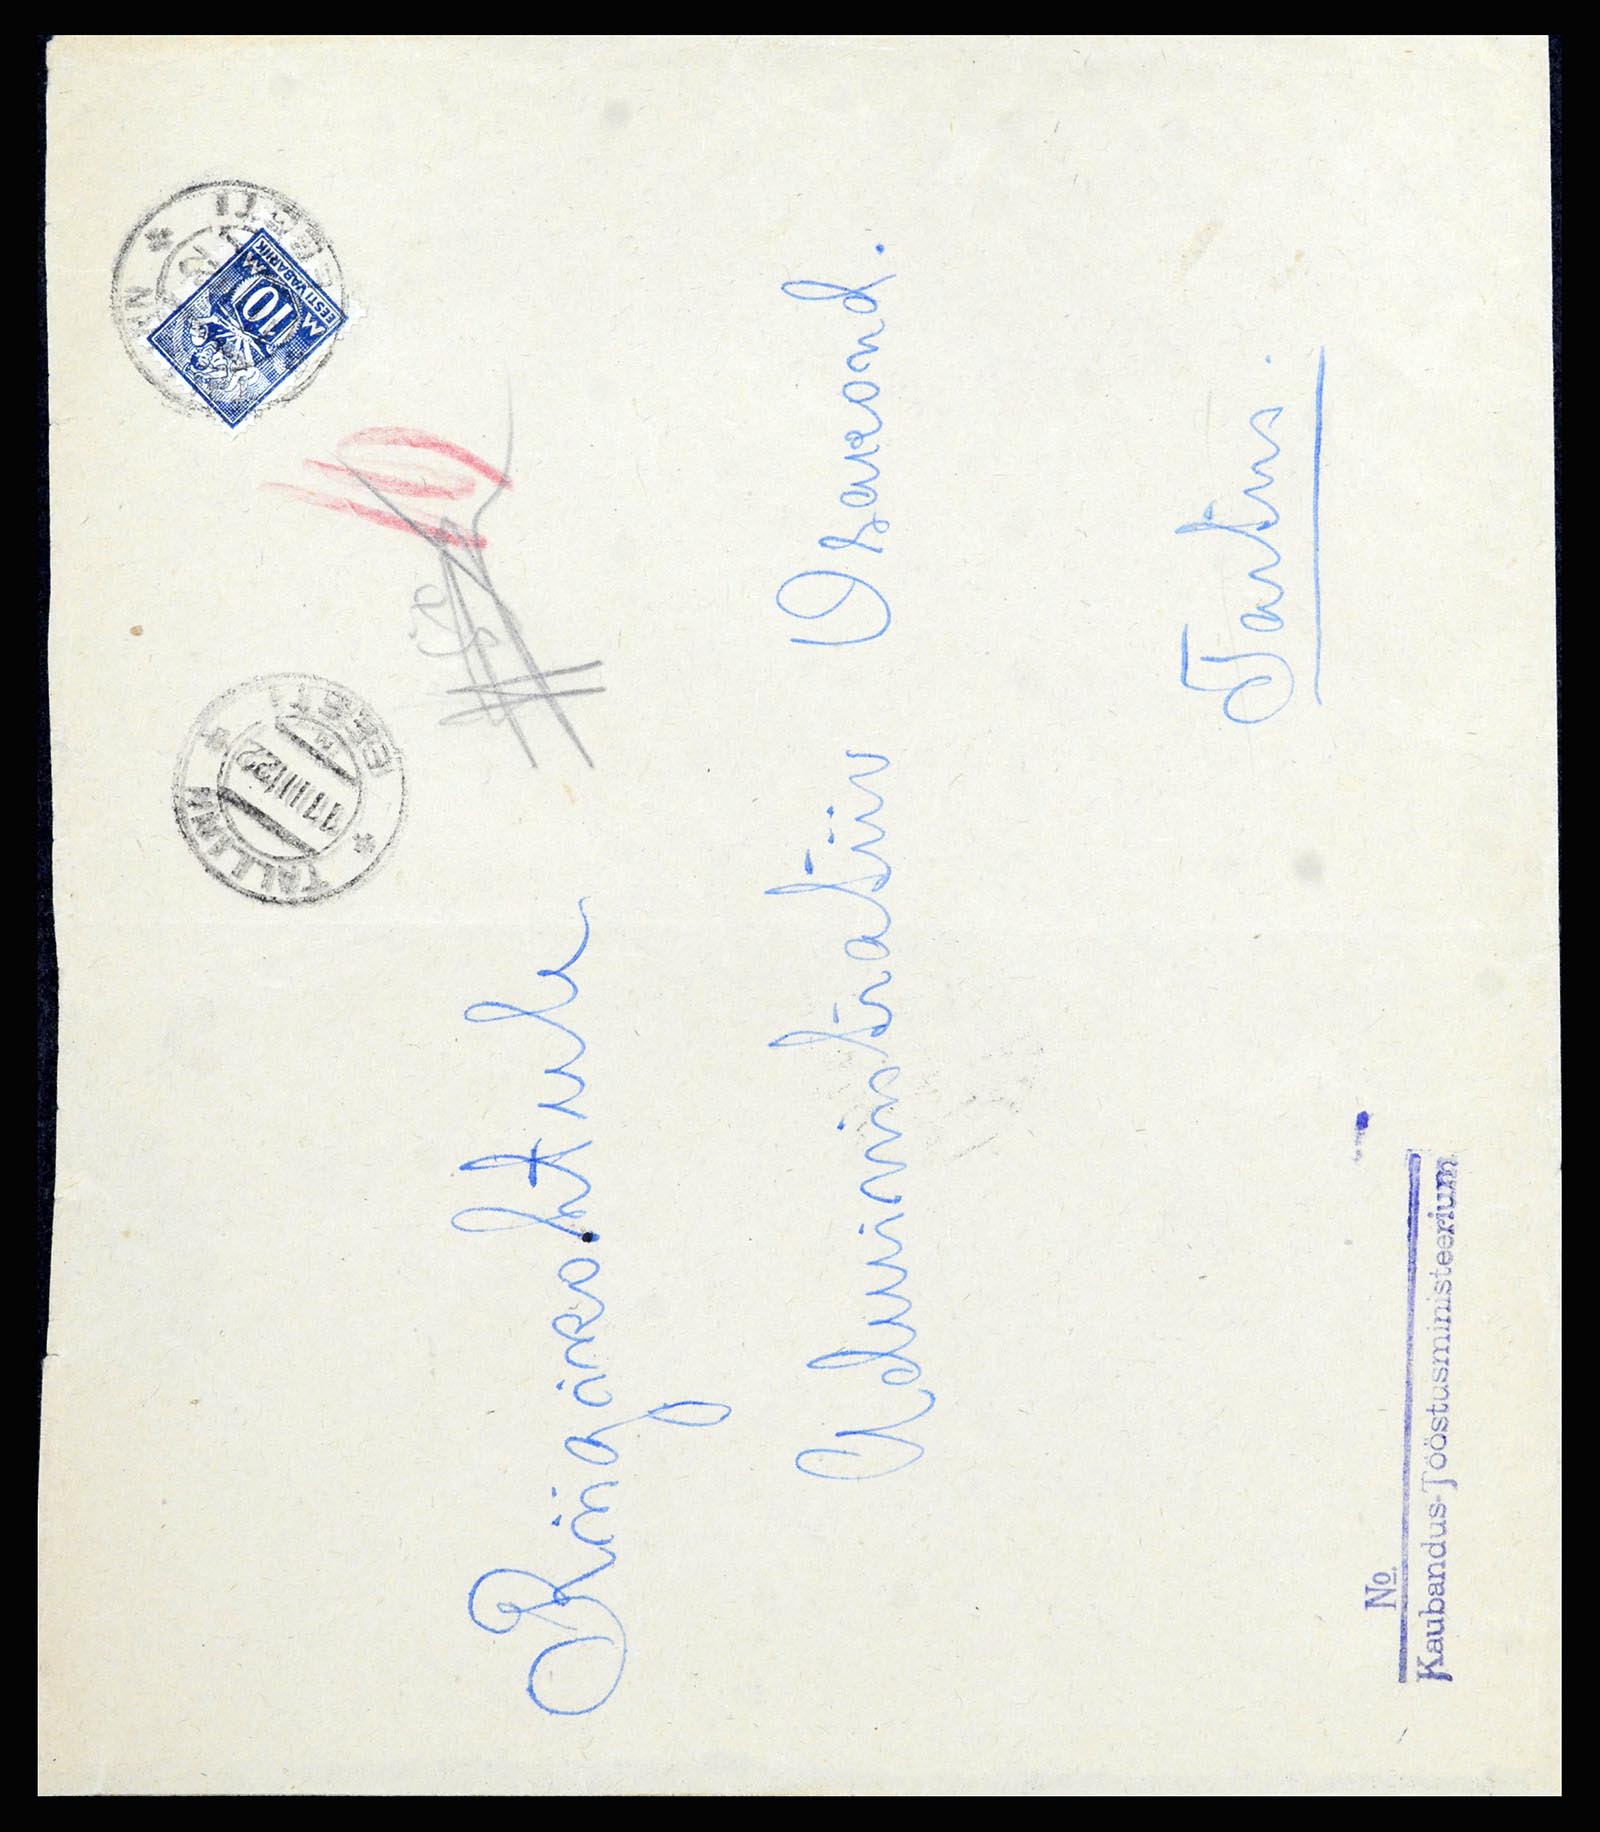 EESTI VABARIIK
M 10 M
EESTI
TALLINN
EESTI
17 III 22
Riigikohtule
Administratiiv Osakond.
Tartus.
No.
Kaubandus-Tööstusministeerium